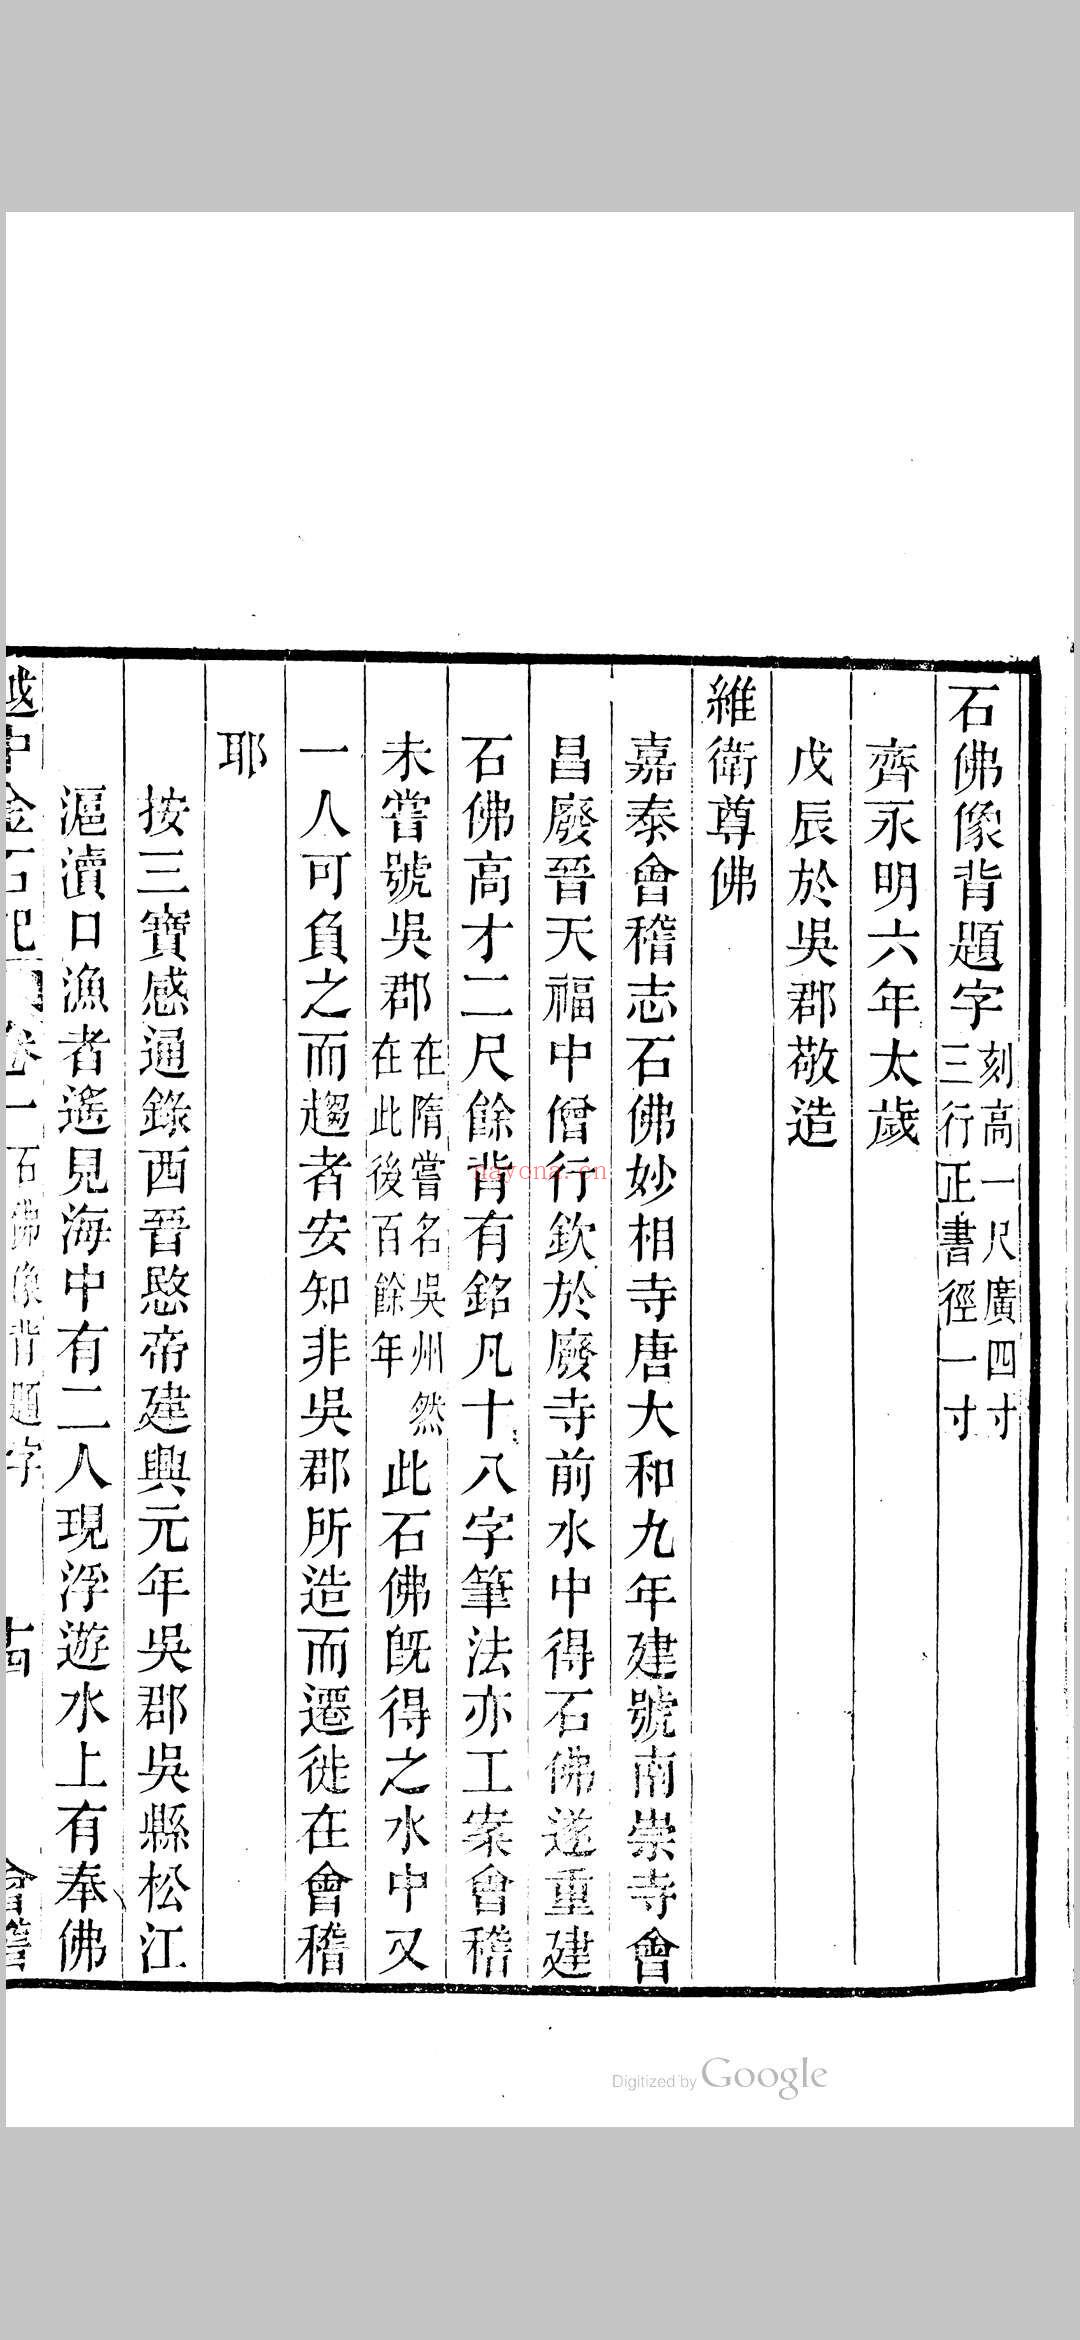 石佛像背題字刻高一尺廣四寸三行正書徑一寸
齊永明六年太歲
戊辰於吳郡敬造
維衛尊佛
嘉泰會稽志石佛妙相寺唐大和九年建號南崇寺會
昌廢晉天福中僧行欽於廢寺前水中得石佛遂重建
石佛高才二尺餘背有銘凡十八字筆法亦工案會稽
未嘗號吳郡在隋嘗名吳州然在此後百餘年此石佛旣得之水中又
一人可負之而趨者安知非吳郡所造而遷徙在會稽
耶
按三寶感通錄西晉愍帝建興元年吳郡吳縣松江
滬瀆口漁者遙見海中有二人現浮遊水上有奉佛
越中金石記卷一石佛像背題字 十四 會稽
nayona.cn
Digitized by Google